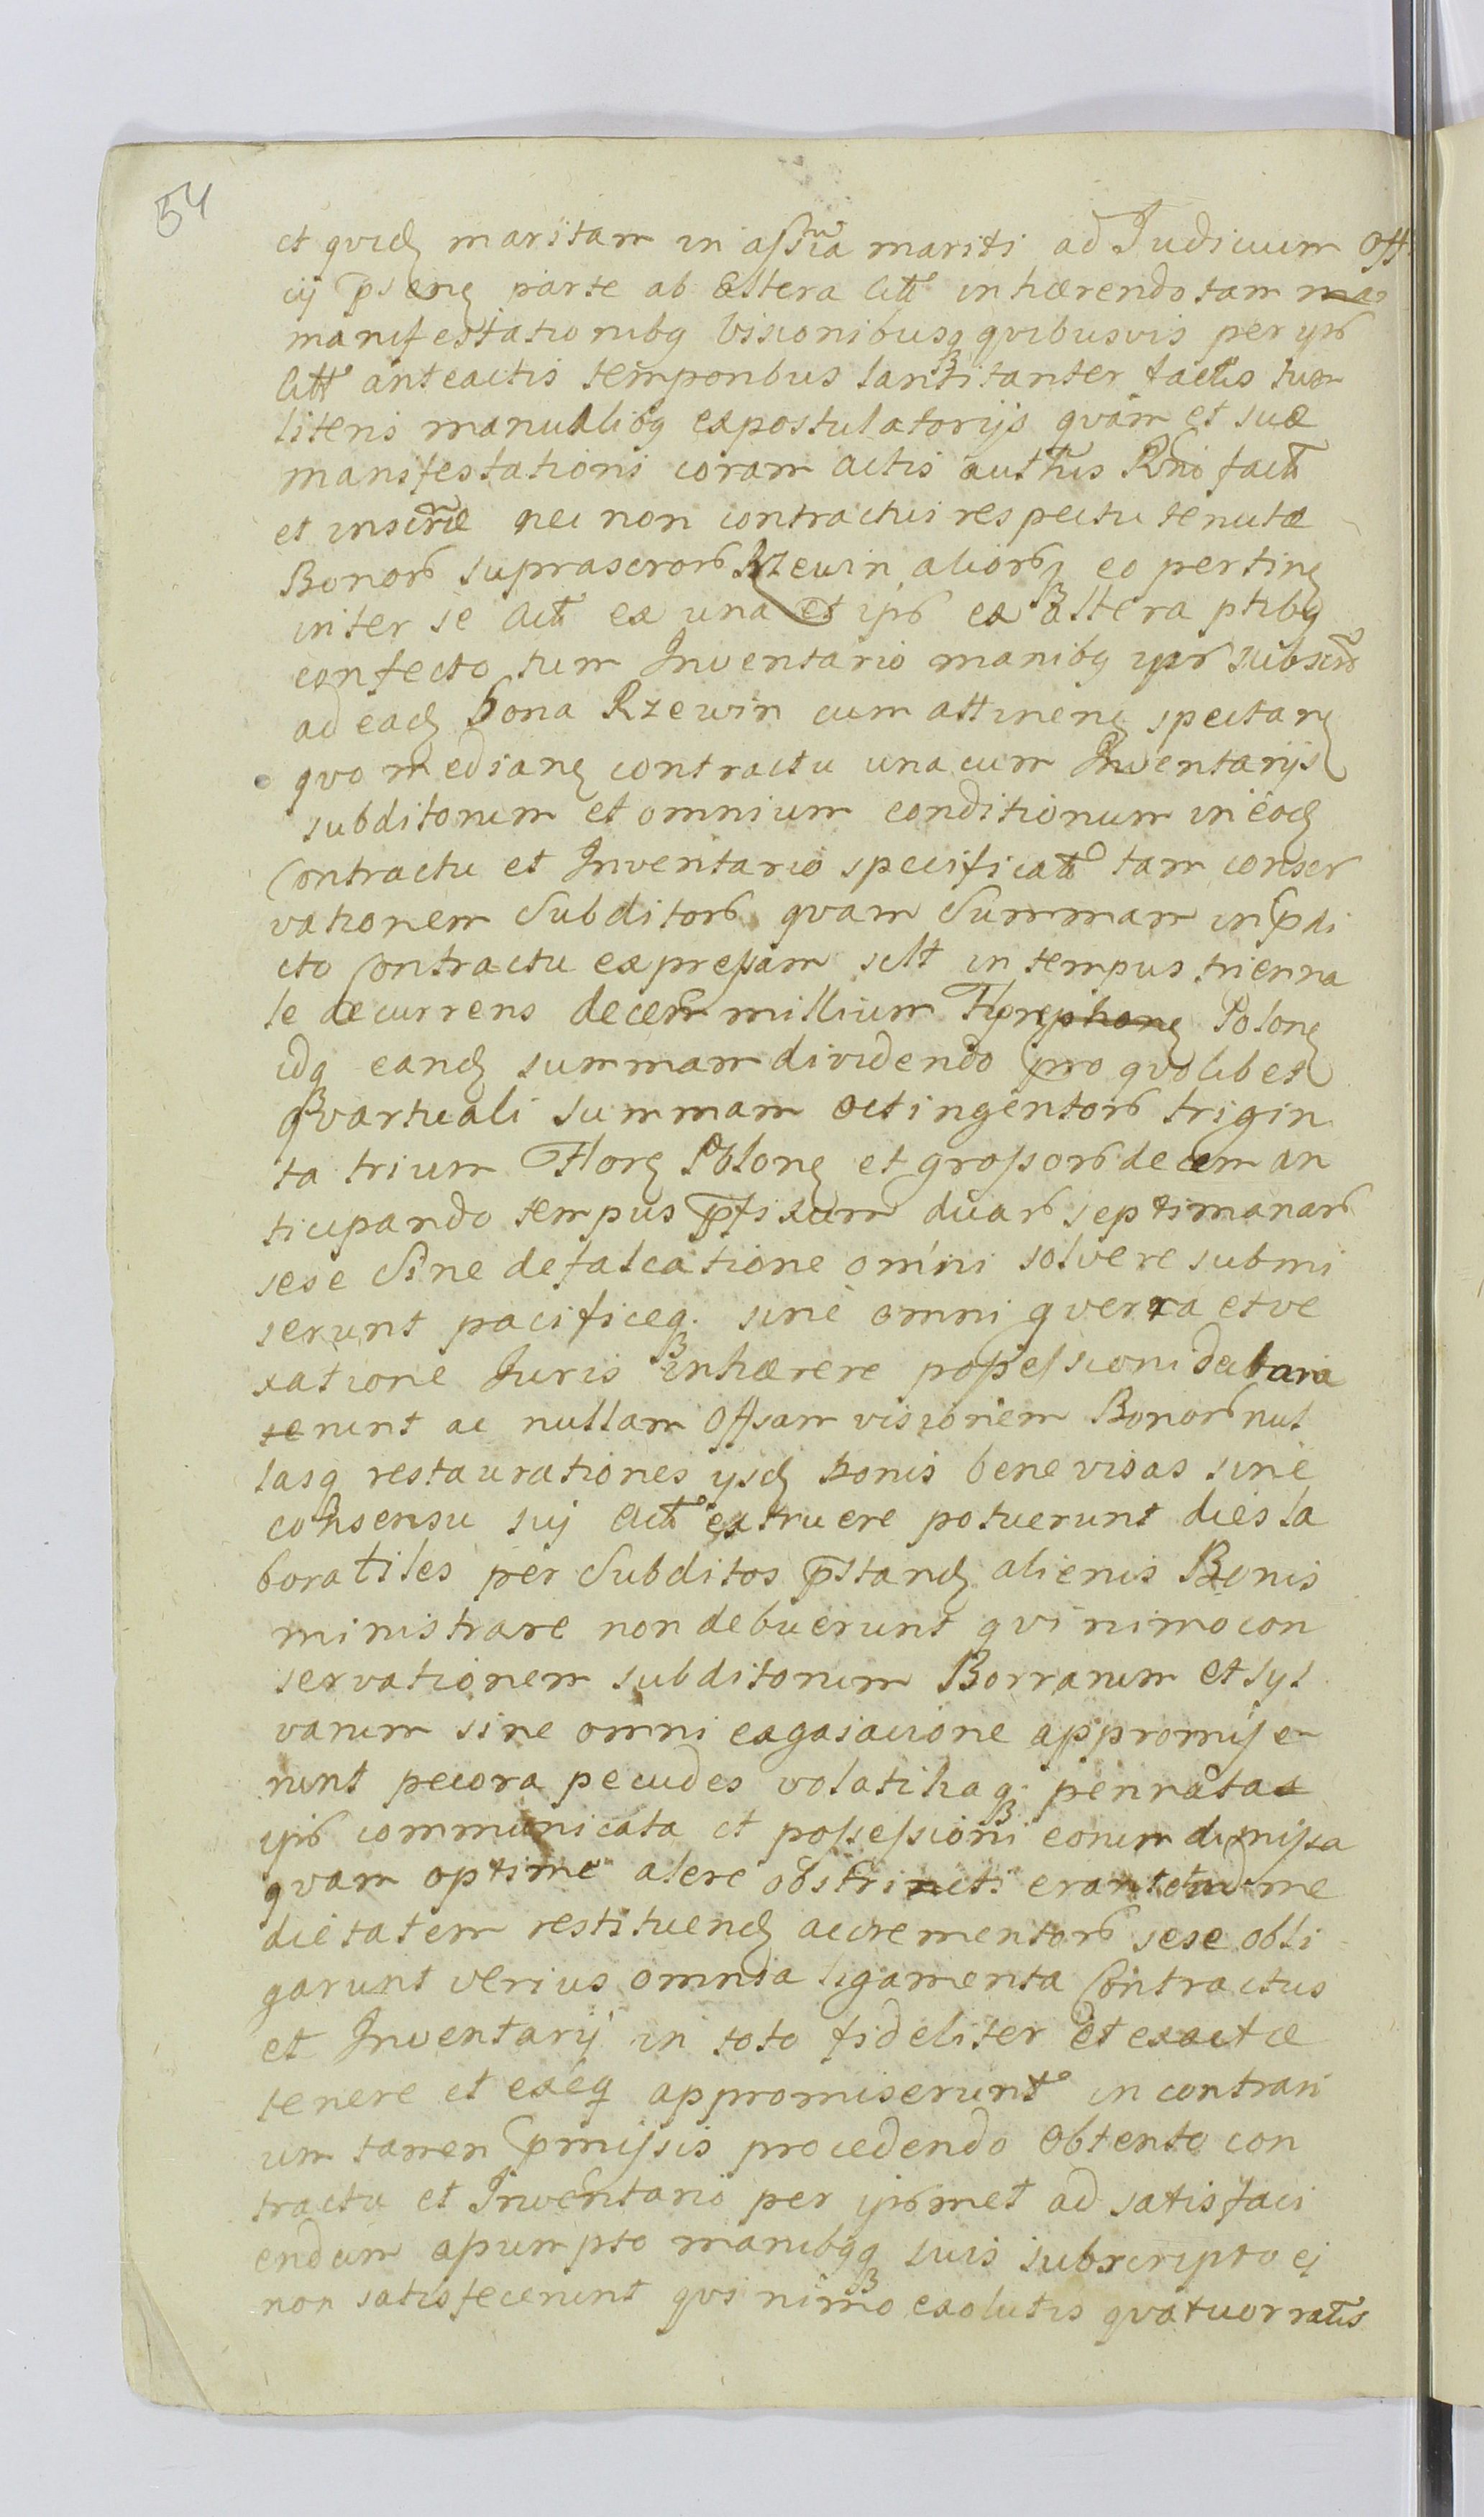 54
et qvid maritam in asstuã mariti ad Judicium Off
cij pstenꝫ parte ab altera Citt inhærendo tam
manifestationibꝫ visionibusqꝫ qvibusvis per ips
Citt anteactis temporibus tam factis tum
literis manualibꝫ expostulatorijs qvam et suæ
manifestationi coram actis auth̃is Rni factæ
et inscr̃æ nec non contractui respectu tenutæ
Bonorꝫ suprascrorꝫ Rzewin aliorꝫqꝫ eo pertinꝫ
inter se Act̃ ex una et ips ex altera ptibꝫ
confecto tum Inventario manibꝫ ipsrꝫ subscr̃o
ad eadꝫ bona Rzewin cum attinenꝫ spectanꝫ
qvo medianꝫ contractu unacum Inventarijs
subditorum et omnium conditionum in eodꝫ
Contractu et Inventario specificat̃ tam conser
vationem Subditorꝫ qvam Summam in p̃di
cto Contractu expressam scilt in tempus trienna
le decurrens decem millium Polonꝫ
idqꝫ eandꝫ summam dividendo pro qvolibet
qvartuali summam octingentorꝫ trigin
ta trium Florꝫ Polonꝫ et grossorꝫ decem an
ticipando tempus p̃fixum duarꝫ septimanarꝫ
sese Sine defalcatione omni solvere submi
serunt pacificeqꝫ sine omni qverra et ve
xatione Juris inhærere possessioni declara
runt ac nullam Offsam visionem Bonorꝫ nul
lasqꝫ restaurationes ijsdꝫ bonis bene visas sine
consensu sui Act̃ extruere potuerunt dies la
boratiles per Subditos p̃standꝫ alienis Bonis
ministrare non debuerunt qvinimo con
servationem subditorum Borrarum et syl
varum sine omni exagiacione appromise
runt pecora pecudes volatiliaqꝫ pennata
ips communicata et possessioni eorum dimissa
qvam optime alere obstricti erant et ad me
dietatem restituendꝫ accrementorꝫ sese obli
garunt verius omnia ligamenta Contractus
et Inventarij in toto fideliter et exacte
tenere et exeqꝫ appromiserunt in contrari
um tamen p̃missis procedendo obtento con
tractu et Inventario per ipsmet ad satisfaci
endum assumpto manibꝫqꝫ suis subscripto ei
non satisfecerunt qvinimo exolutis qvatuor ratis